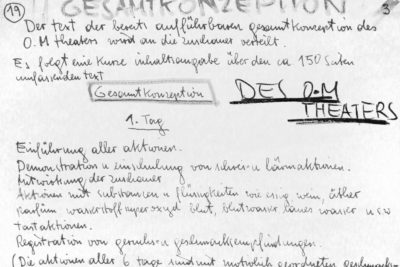 19 GESAMTKONZEPTION 3
Der text der bereits aufführbaren gesamtkonzeption des
O.M theaters wird an die zuschauer verteilt.
Es folgt eine kurze inhaltsangabe über den ca 150 Seiten
umfassenden text
Gesamtkonzeption DES O.M
THEATERS
1. Tag
Einführung aller aktionen.
Demonstration u einschulung von schrei-u lärmaktionen.
Mitwirkung der zuschauer
Aktionen mit substanzen u flüssigkeiten wie essig wein, äther
parfüm wasserstoffsuperoxyd blut, blutwasser laues wasser usw
tastaktionen.
Registration von geruchs-u geschmacksempfindungen.
(Die aktionen aller 6 tage sind mit geordneten geschmacks-